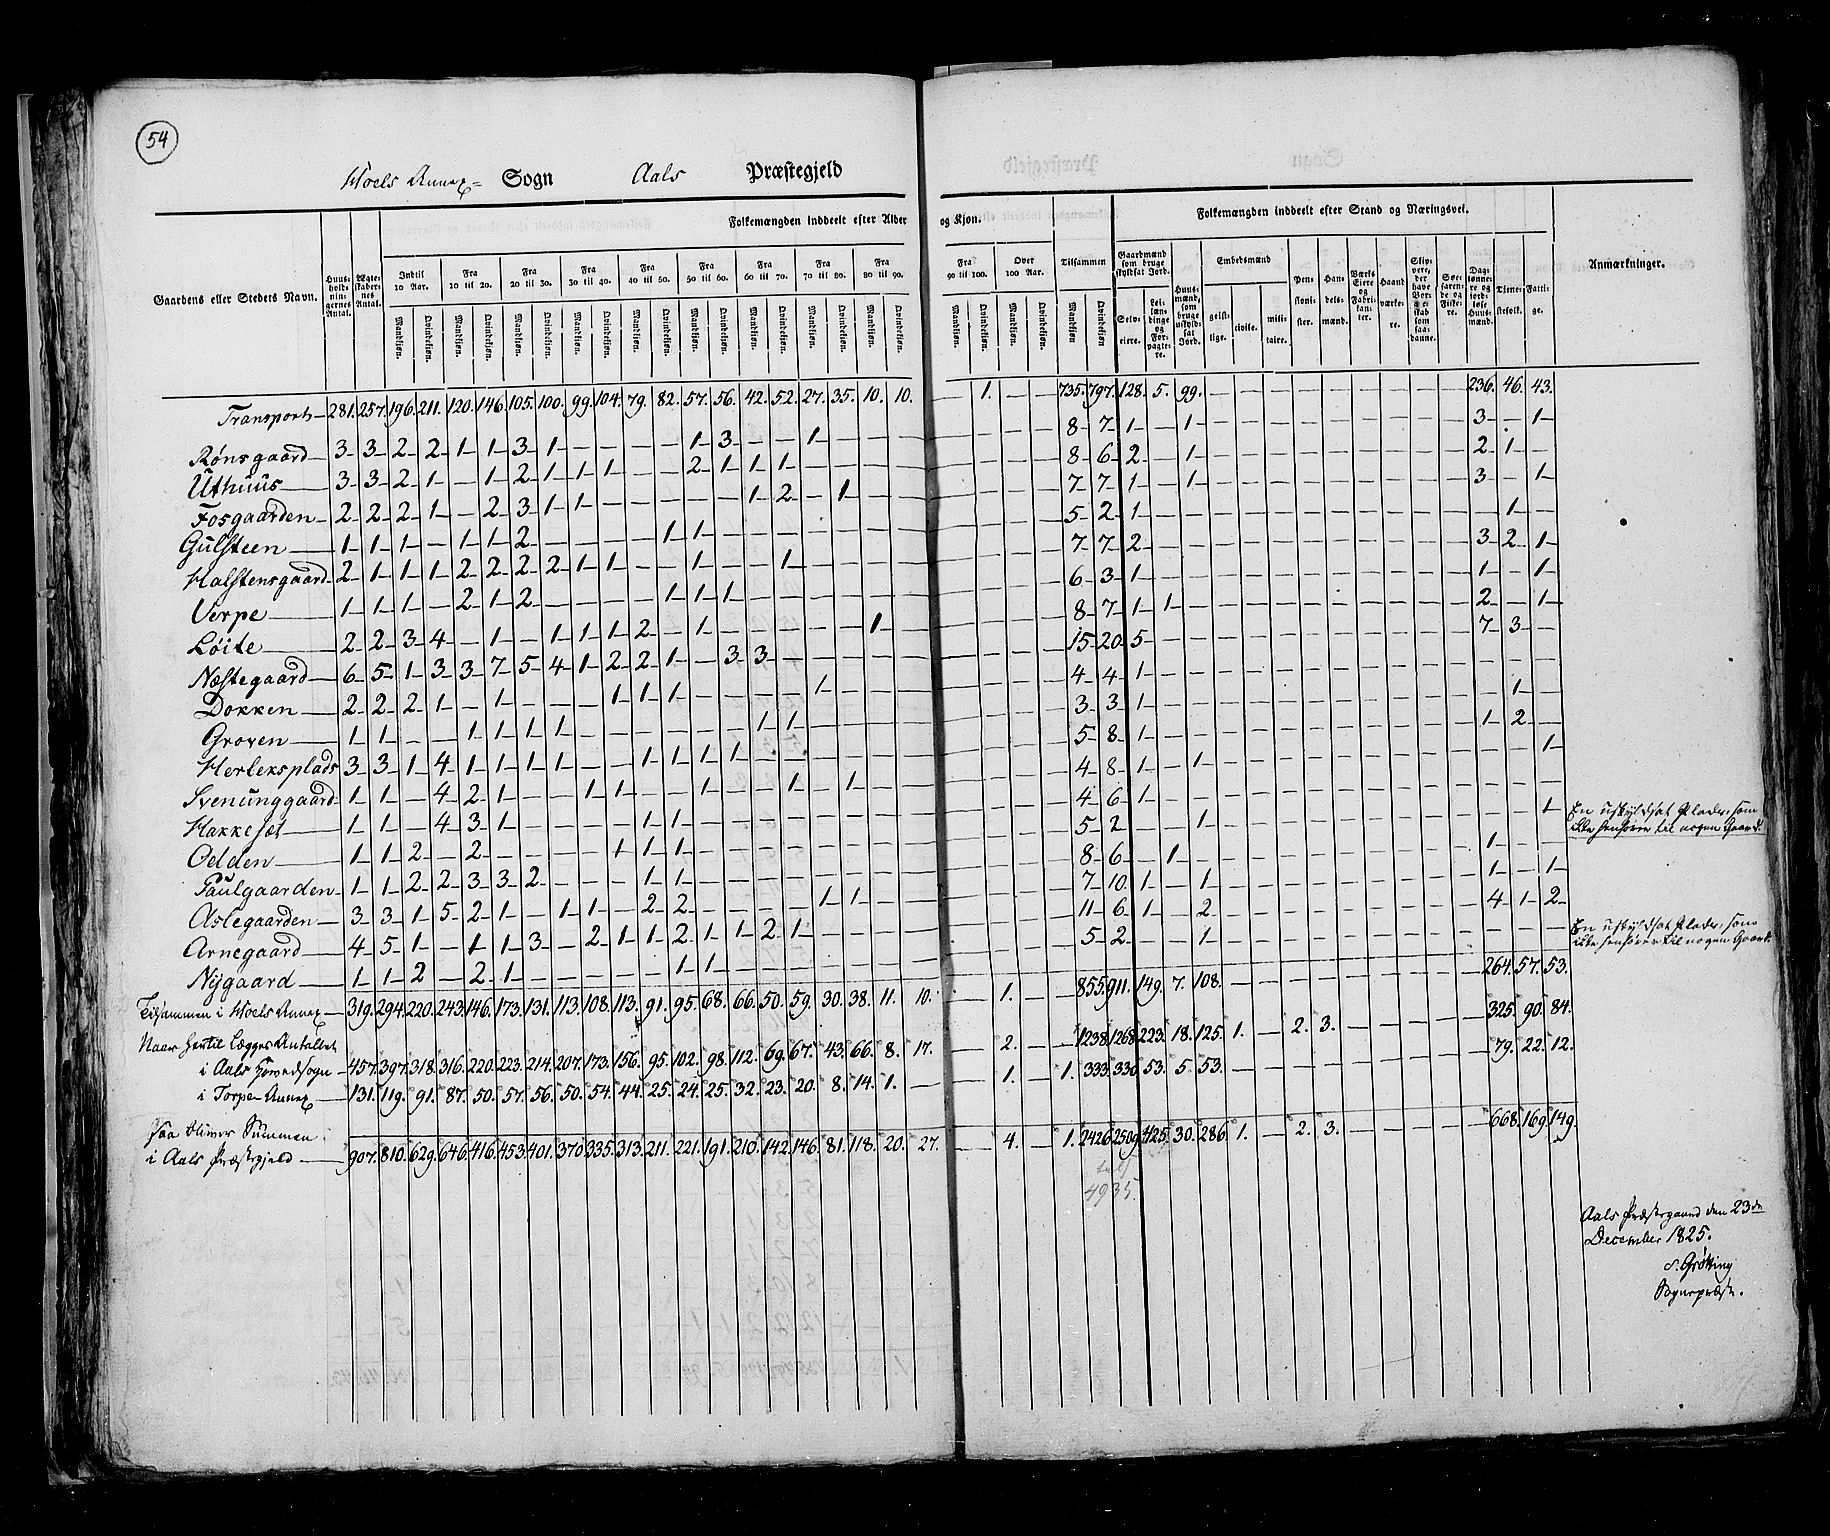 54
Hoels Annex= Sogn Aals Præstegjeld
Gaardens eller Stedets Navn. Huus-holdningernes Antal. Ægteskabernes Antal. Folkemængden inddeelt efter Alder og Kjøn. Tilsammen Folkemængden inddeelt efter Stand og Næringsvei. Anmærkninger.
Indtil 10 Aar. Fra 10 til 20. Fra 20 til 30. Fra 30 til 40. Fra 40 til 50. Fra 50 til 60. Fra 60 til 70. Fra 70 til 80. Fra 80 til 90. Fra 90 til 100. Over 100 Aar.
Mandkjøn. Qvindekjøn.
Gaardmænd som bruge skyldsat Jord. Selveiere. Leilændinge og Forpagtere. Huusmænd, som bruge uskyldsat Jord. Embedsmænd geistlige. civile. militaire. Pensionister. Handelsmænd. Værks Eiere og Fabrikanter. Haandværkere. Tjenestefolk. Fattige.
Transport 281. 257. 196. 211. 120. 146. 105. 100. 99. 104. 79. 82. 57. 56. 42. 52. 27. 35. 10. 10. — 1. — — 735. 797. 128. 5. 99. — — — — — — — — — 236. 46. 43.
Rønsgaard 3 3 2 2 1 1 3 1 — — — — 1 3 — — 1 — — — 8 7 1 — 1 3 — 1
Uthuus 3 3 2 1 — 1 2 1 1 1 — — 2 1 1 1 — — — — 8 6 2 — 1 2 1 —
Fosgaarden 2 2 2 1 — 2 3 1 1 — — — — — 1 2 — 1 — — 7 7 1 — 1 3 — 1
Gulsteen 1 1 1 — 1 1 2 — — — — 1 1 — — — — — — — 5 2 1 — — — 1 —
Halstensgaard 2 1 1 1 2 2 2 2 1 1 — — 1 — — 1 — — — — 7 7 2 — — 3 2 1
Verpe 1 1 1 — 2 1 2 — — — — 1 1 1 — — — — — — 6 3 1 — — 1 — 1
Løite 2 2 3 4 — 1 — 1 1 1 2 — 1 — — — — — 1 — 8 7 1 1 — 2 — 1
Næstegaard 6 5 1 3 3 7 5 4 1 2 2 1 — 3 3 — — — — — 15 20 5 — — 7 3 —
Dokken 2 2 2 1 — 1 — — — 1 1 1 — — — — 1 — — — 4 4 1 — — — — —
Groven 1 1 — — 1 1 1 1 — — — — — — 1 1 — — — — 3 3 1 — — — 1 —
Herleksplads 3 3 1 4 1 1 1 1 — — 1 1 1 1 — — — — — — 5 8 1 — — 1 2 —
Svenunggaard 1 1 — 4 2 1 — — 1 1 — — 1 — — 1 — 1 — — 4 8 1 — 1 — — 1
Hakkesæt 1 1 — 4 3 1 — — — — 1 1 — — — — — — — — 4 6 1 — — — — —
Odden 1 1 2 — 2 — — — — 1 1 1 — — — — — — — — 5 2 — — 1 — — 1 En uskyldsat Plads, som
ikke henhører til nogen Gaard.
Paulgaarden 1 1 2 2 3 3 2 — — — 1 1 — — — — — — — — 8 6 — 1 — 1 — —
Aslegaarden 3 3 1 5 2 1 — 1 1 — 2 2 — — — — 1 1 — — 7 10 1 — 1 1 — 1
Arnegaard 4 5 1 — 1 1 3 — 2 1 1 2 1 1 2 1 — — — — 11 6 1 — 2 4 1 2
Nygaard 1 1 2 — 2 1 — — — — — 1 1 — — — — — — — 5 2 — — 1 — — — En uskyldsat Plads, som
ikke henhører til nogen Gaard.
Tilsammen i Hoels Annex 319. 294. 220. 243. 146. 173. 131. 113. 108. 113. 91. 95. 68. 66. 50. 59. 30. 38. 11. 10. — 1. — — 855. 911. 149. 7. 108. — 264. 57. 53.
Naar hertil lægges Antallet
i Aals Hovedsogn 457. 397. 318. 316. 220. 223. 214. 207. 173. 156. 95. 102. 98. 112. 69. 67. 43. 66. 8. 17. — 2. — — 1238. 1268. 223. 18. 125. 1. — 2. 3. — 325. 90. 84.
i Torpe Annex 131. 119. 91. 87. 50. 57. 56. 50. 54. 44. 25. 24. 25. 32. 23. 20. 8. 14. 1. — — 1. — 1. 333. 330. 53. 5. 53. — 79. 22. 12.
saa bliver Summen
i Aals Præstegjeld 907. 810. 629. 646. 416. 453. 401. 370. 335. 313. 211. 221. 191. 210. 142. 146. 81. 118. 20. 27. — 4. — 1. 2426. 2509. 425. 30. 286. 1. — 2. 3. — 668. 169. 149.
4935.
Aals Præstegaard den 23de
December 1825.
S. Grøtting
Sognepræst.